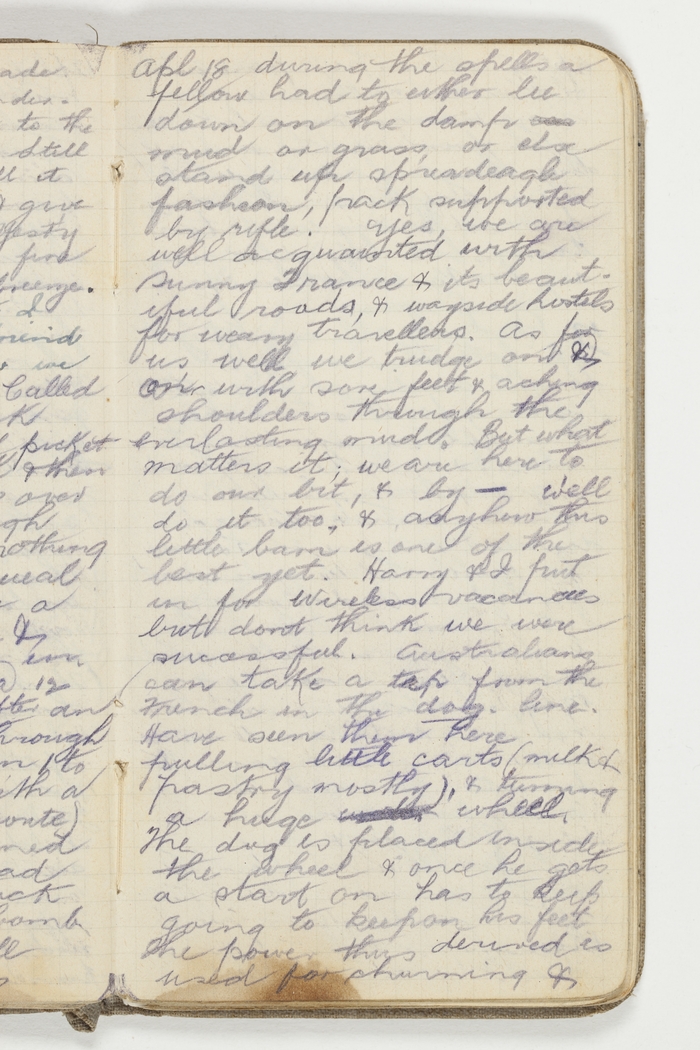 ade.
nder.
to the
Still
ll it
give
esty
fire
breeze.
& I
friend
we
Called
k
picket
& then
s over
gh
nothing
ueal
a
&
in
12
after an
through
n, to
ith a
route)
ned
ad
ack
bomb
ll
Apl 18 during the spells a
fellow had to either lie
down on the damp
mud or grass, or else
stand up spreadeagle
fashion, pack supported
by rifle. Yes, we are
well acquainted with
Sunny France & its beaut-
iful roads, & wayside hostels
for weary travellers. As for
us well we trudge on &
on with sore feet & aching
shoulders through the
everlasting mud. But what
matters it; we are here to
do our bit, & by — well
do it too, & anyhow this
little barn is one of the
best yet. Harry & I put
in for wireless vacancies
but dont think we were
sucessful. Australians
can take a tap from the
French in the dog. line.
Have seen them here
pulling little carts (milk &
pastry mostly), & turning
a huge wheel.
The dog is placed inside
the wheel & once he gets
a start on has to keep
going to keep on his feet
the power thus derived is
used for churning &